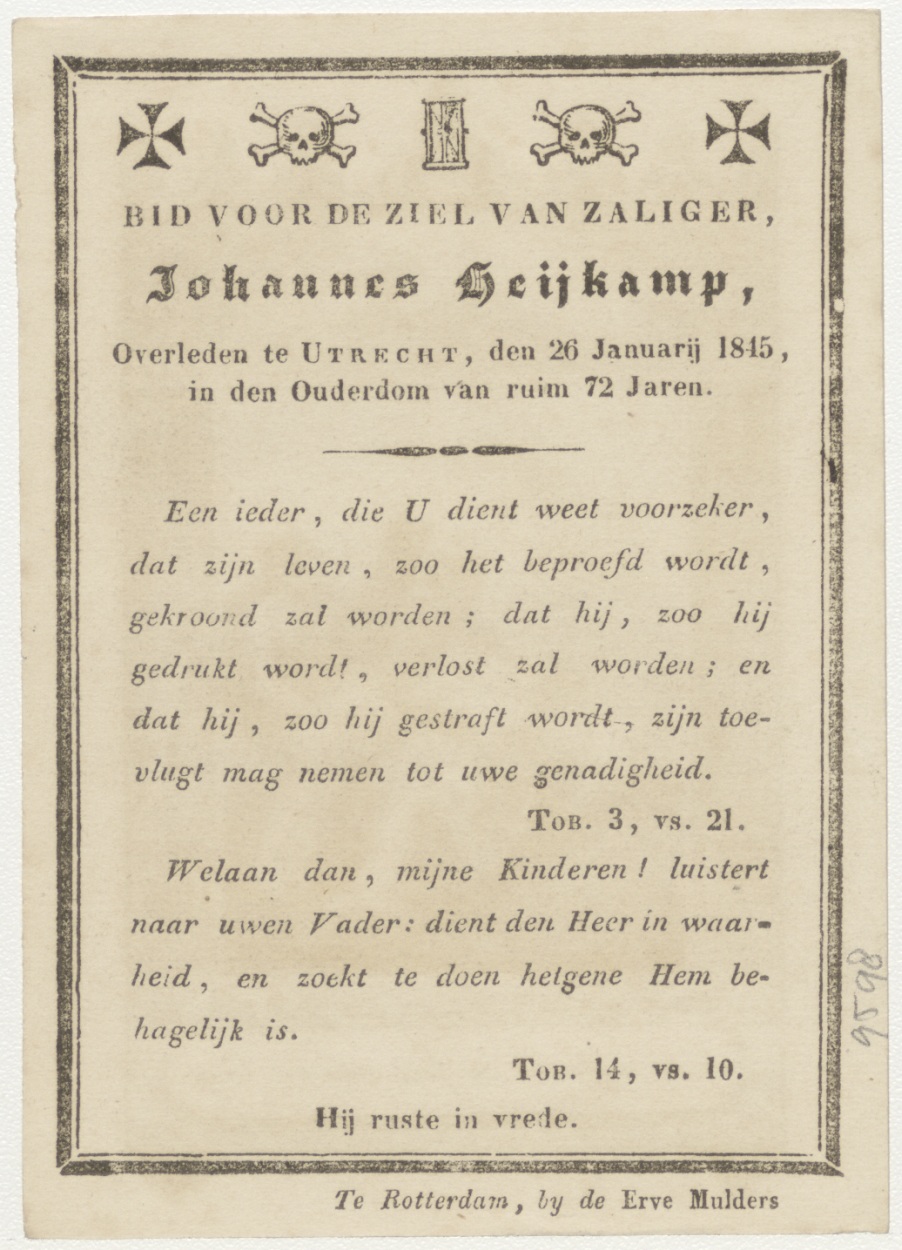 BID VOOR DE ZIEL VAN ZALIGER,
Johannes Heijkamp,
Overleden te UTRECHT, den 26 Januarij 1845,
in den Ouderdom van ruim 72 Jaren.
Een ieder, die U dient weet voorzeker,
dat zijn leven, zoo het beproefd wordt,
gekroond zal worden; dat hij, zoo hij
gedrukt wordt, verlost zal worden; en
dat hij, zoo hij gestraft wordt, zijn toe-
vlugt mag nemen tot uwe genadigheid.
TOB. 3, vs. 21.
Welaan dan, mijne Kinderen! luistert
naar uwen Vader: dient den Heer in waar-
heid, en zoekt te doen hetgene Hem be-
hagelijk is.
TOB. 14, vs. 10.
Hij ruste in vrede.
Te Rotterdam, by de Erve Mulders
9598